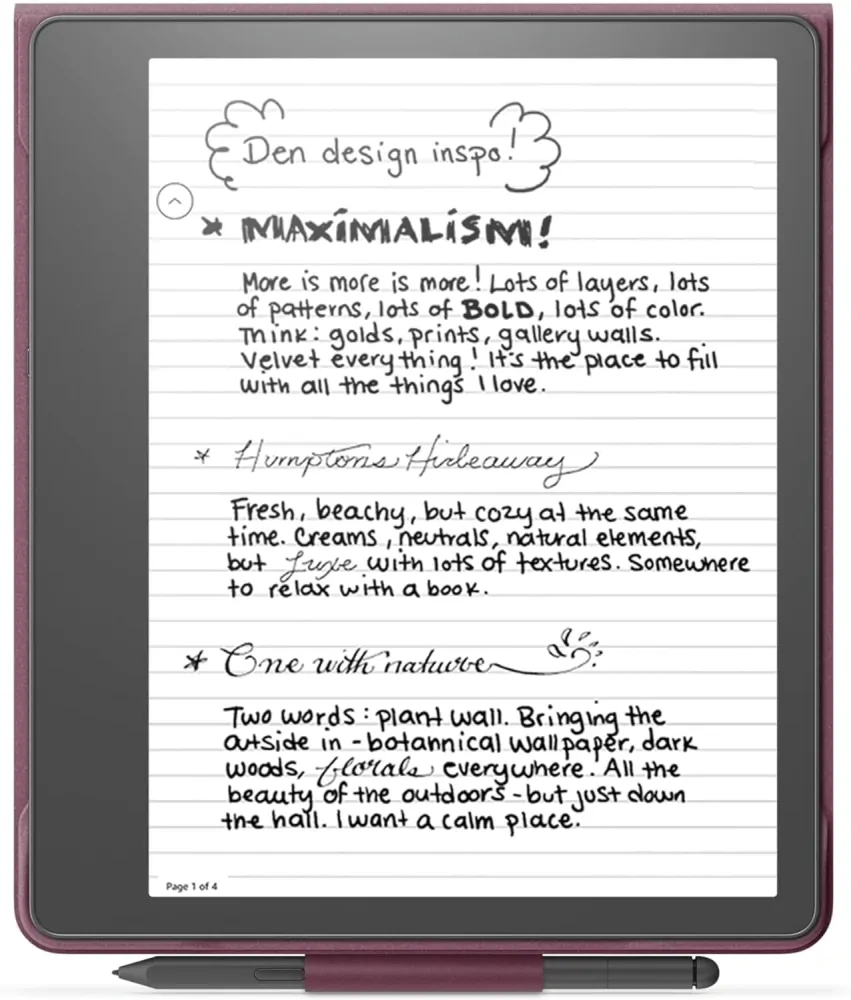 Den design inspo!
* MAXIMALISM!
More is more is more! Lots of layers, lots
of patterns, lots of BOLD, lots of color.
Think: golds, prints, gallery walls.
Velvet everything! It's the place to fill
with all the things I love.
* Humptons Hideaway
Fresh, beachy, but cozy at the same
time. Creams, neutrals, natural elements,
but Luxe with lots of textures. Somewhere
to relax with a book.
* One with nature
Two words: plant wall. Bringing the
outside in - botannical wallpaper, dark
woods, florals everywhere. All the
beauty of the outdoors - but just down
the hall. I want a calm place.
Page 1 of 4